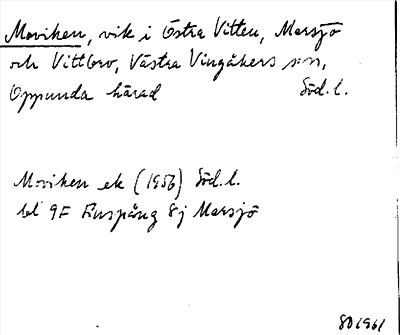 Moviken, vik i Östra Vitten, Marsjö
och Vittbro, Västra Vingåkers s:n,
Oppunda härad Söd. l.
Moviken ek (1956) Söd. l.
bl 9F Finspång 8j Marsjö
SO 1961